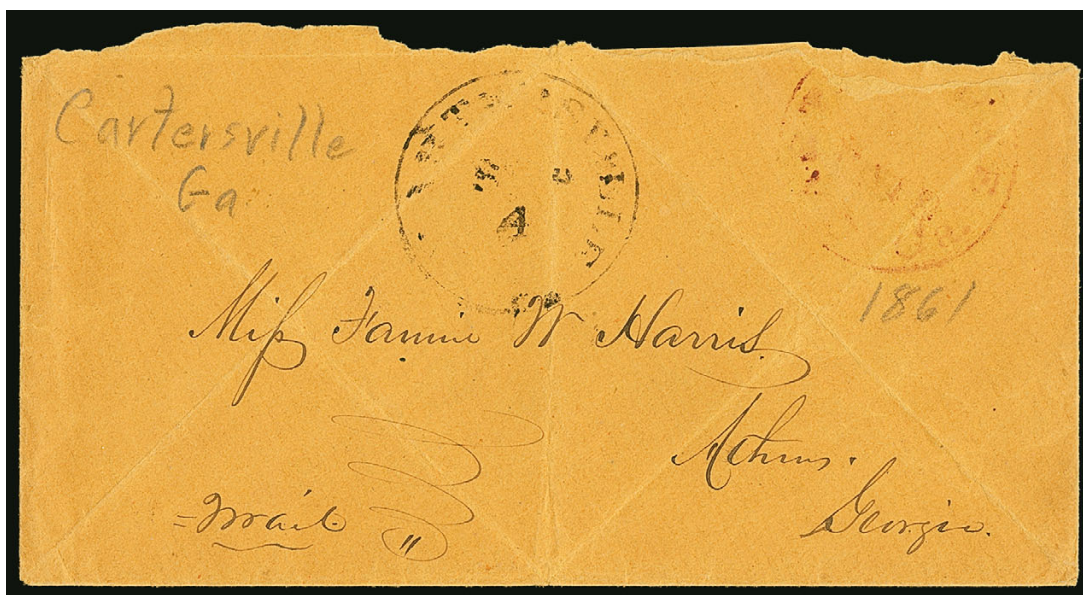 Cartersville
Ga
4
1861
Miss Fannie W Harris.
Athens.
Georgia.
=Mail